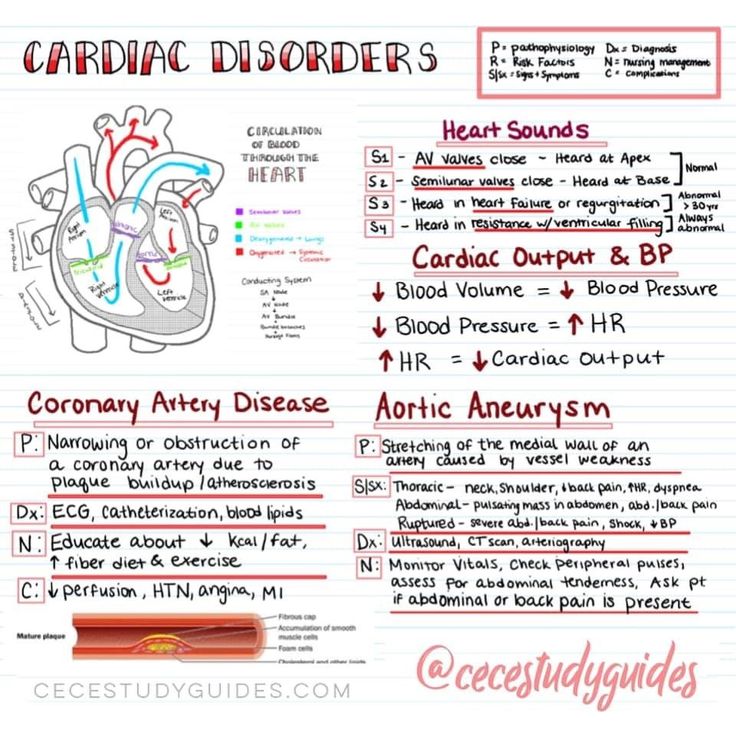 CARDIAC DISORDERS
P = pathophysiology Dx = Diagnosis
R = Risk Factors N = nursing management
S|Sx = Signs + Symptoms C = complications
CIRCULATION
OF BLOOD
THROUGH THE
HEART
Semilunar valves
AV valves
Deoxygenated → Lungs
Oxygenated → Systemic
Circulation
Conducting System
SA Node
↓
AV Node
↓
AV Bundle
↓
Bundle branches
↓
Purkinje Fibers
Right
Atrium
Left
Atrium
Right
Ventricle
Left
Ventricle
Heart Sounds
S1 - AV valves close - Heard at Apex
S2 - Semilunar valves close - Heard at Base
Normal
S3 - Heard in heart failure or regurgitation
Abnormal
> 30 yrs
S4 - Heard in resistance w/ ventricular filling
Always
abnormal
Cardiac Output & BP
↓ Blood Volume = ↓ Blood Pressure
↓ Blood Pressure = ↑ HR
↑ HR = ↓ Cardiac Output
Coronary Artery Disease
P: Narrowing or obstruction of
a coronary artery due to
plaque buildup/atherosclerosis
Dx: ECG, Catheterization, blood lipids
N: Educate about ↓ Kcal/fat,
↑ fiber diet & exercise
C: ↓ perfusion, HTN, angina, MI
Mature plaque
Fibrous cap
Accumulation of smooth
muscle cells
Foam cells
Cholesterol and other lipids
CECESTUDYGUIDES.COM
Aortic Aneurysm
P: Stretching of the medial wall of an
artery caused by vessel weakness
S|Sx: Thoracic - neck, Shoulder, ↓ back pain, ↑HR, dyspnea
Abdominal - pulsating mass in abdomen, abd./back pain
Ruptured - severe abd./back pain, Shock, ↓ BP
Dx: Ultrasound, CT scan, arteriography
N: Monitor Vitals, Check Peripheral pulses,
assess for abdominal tenderness, Ask pt
if abdominal or back pain is present
@cecestudyguides